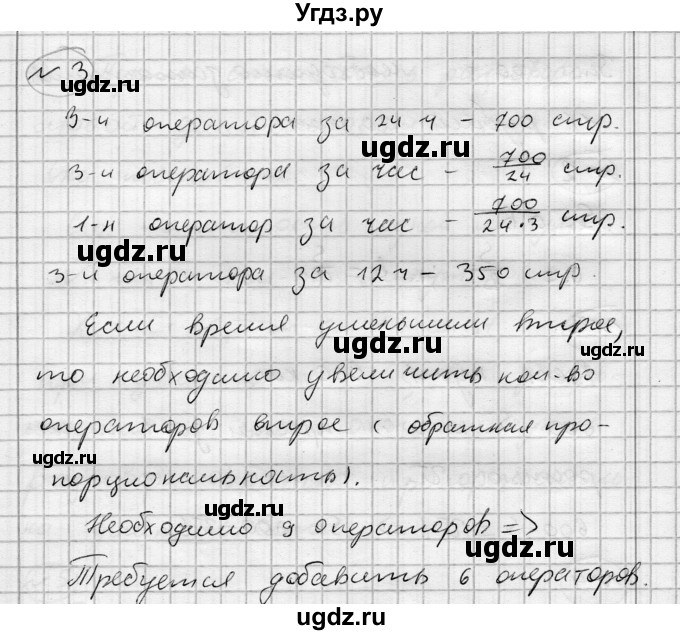 Угдз.ру
№3
3-и оператора за 24 ч - 700 стр.
ugdz.ru
3-и оператора за час - 700/24 стр.
1-н оператор за час - 700/24·3 стр.
ugdz.ru
3-и оператора за 12 ч - 350 стр.
Если время уменьшили втрое,
ugdz.ru ugdz.ru
то необходимо увеличить кол-во
операторов втрое (обратная про-
ugdz.ru
порциональность).
ugdz.ru
Необходимо 9 операторов =>
ugdz.ru
Требуется добавить 6 операторов.
ugdz.ru ugdz.ru